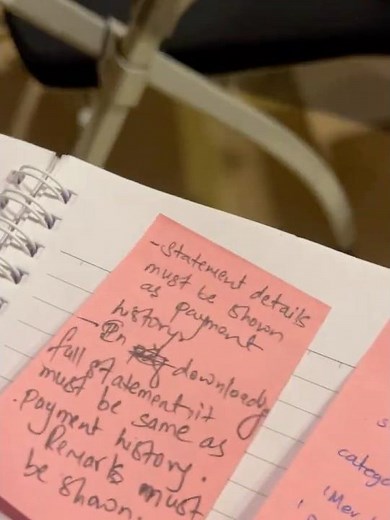 -Statement details
must be shown
as payment
history
→ In downloady
full statement it
must be same as
.payment history.
Remarks must
be shown.
s
catego
(Mer